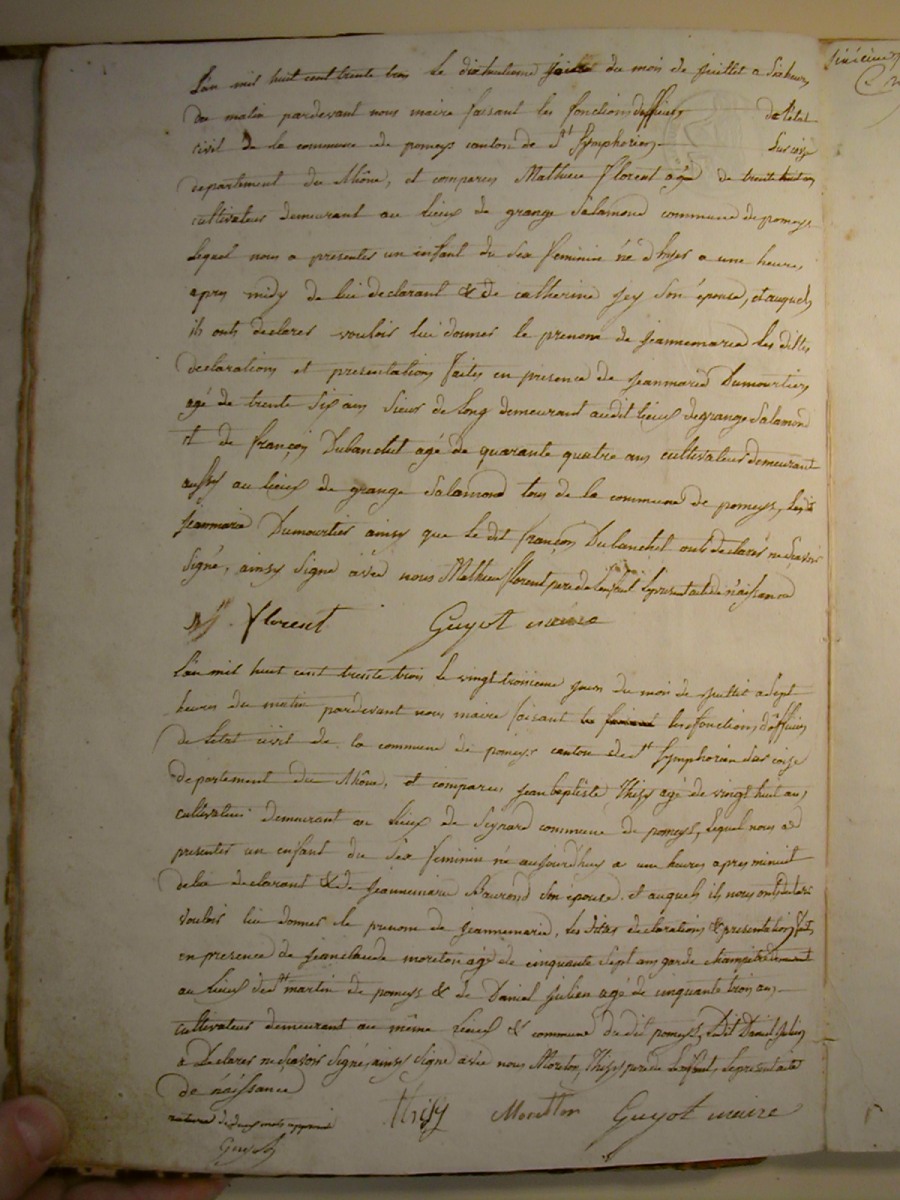 L'an mil huit cent trente trois le dixhuitieme jour du mois de juillet a six heures
du matin pardevant nous maire faisant les fonctions d'officier de l'état
civil de la commune de pomeys canton de St Symphorien Sur coise
departement du Rhône, et comparu Mathieu Florent agé de trente huit ans
cultivateur demeurant au lieux de grange Salamond commune de pomeys
lequel nous a presenter un enfant du Sex feminin né d'hyer a une heure,
apres midy de lui declarant & de catherine jey Son épouse, et auquels
ils onts declarer vouloir lui donner le prenom de jeannemarie les dittes
declarations et presentations faites en presence de jeanmarie Dumourtier
agé de trente Six ans Sieur de long demeurant audit lieux de grange Salamond
et de françois Dubanchet agé de quarante quatre ans cultivateur demeurant
aussy au lieux de grange Salamond tous de la commune de pomeys, lesdit
jeanmarie Dumourtier ainsy que le dit françois Dubanchet onts declarer ne Scavoir
Signé, ainsy Signé avec nous Mathieu florent pere de l'enfant le present acte de naissance
Mu Florent Guyot maire
L'an mil huit cent trente trois le vingt troisieme jour du mois de juillet a Sept
heures du matin pardevant nous maire faisant les fonctions d'officier
de l'etat civil de la commune de pomeys canton de St Symphorien Sur coise
departement du Rhône, et comparu jean baptiste Thizy agé de vingt huit ans
cultivateur demeurant au lieux de commune de pomeys, lequel nous a
presenter un enfant du Sex feminin né aujourd'huy a une heures apres minuit
de lui declarant & de jeannemarie Son épouse, et auquels ils nous onts declarer
vouloir lui donner le prenom de jeannemarie, les dittes declarations & presentations faites
en presence de jeanclaude moreton agé de cinquante Sept ans garde champêtre demeurant
au lieux de St martin de pomeys & de Daniel julien agé de cinquante trois ans
cultivateur demeurant au même lieux & commune du dit pomeys, Ledit Daniel julien
a Declarer ne Scavoir Signé, ainsy Signé avec nous Moreton, Thizy pere de l'enfant, le present acte
de naissance
rature de deux mots approuvé Thizy Moretton Guyot maire
Guyot